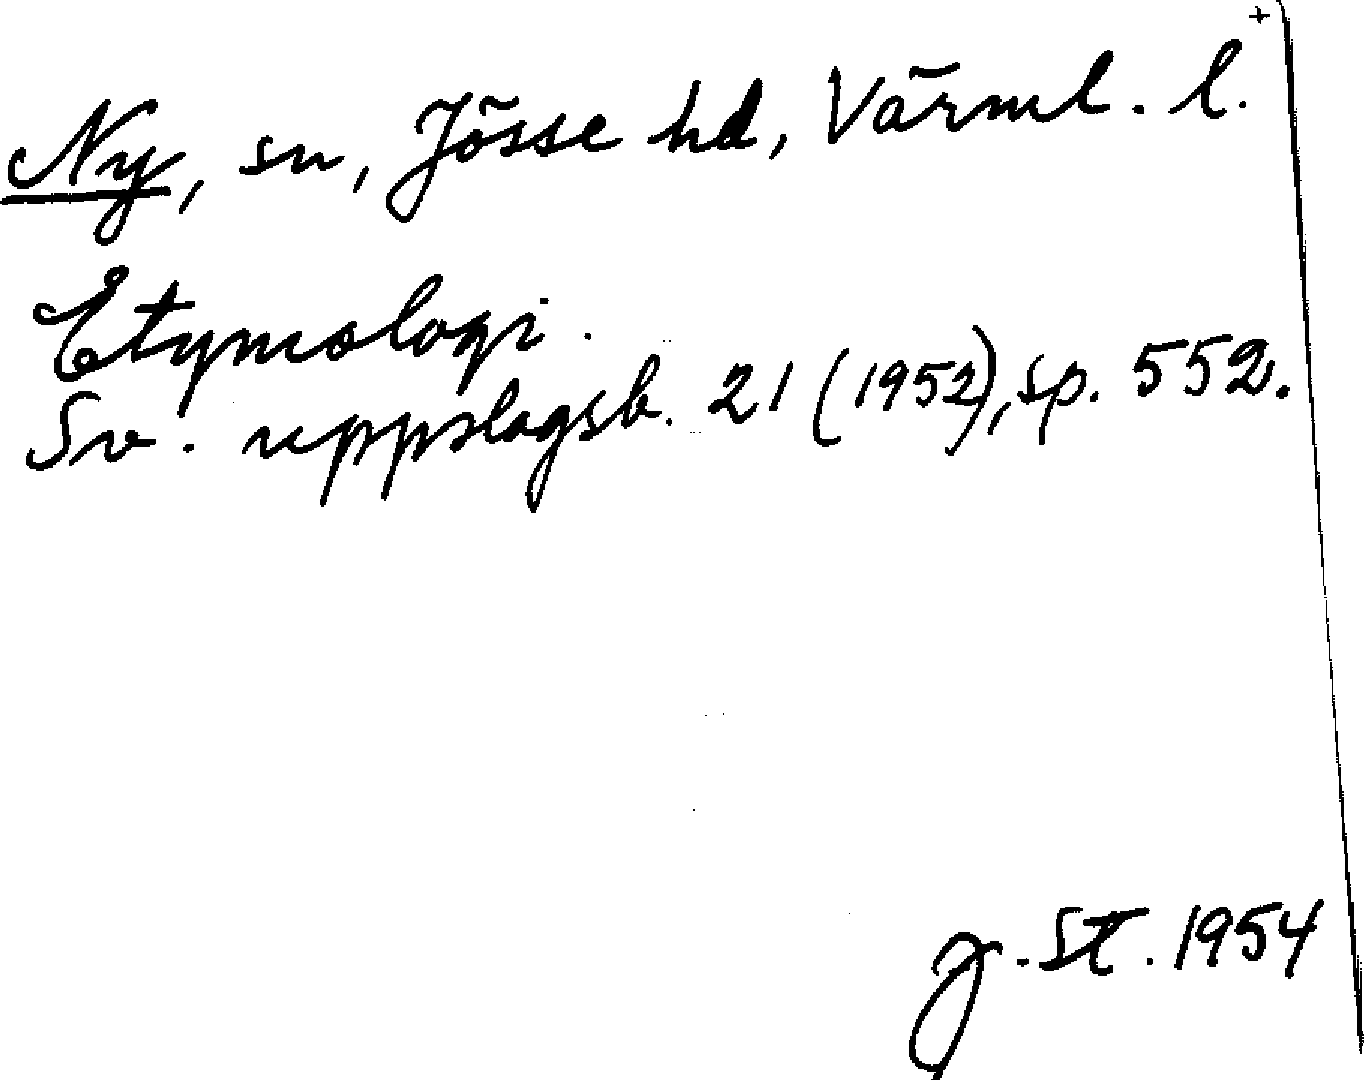 +
Ny, sn, Jösse hd, Värml. l.
Etymologi.
Sv. uppslagsb. 21 (1952), sp. 552.
J. St. 1954